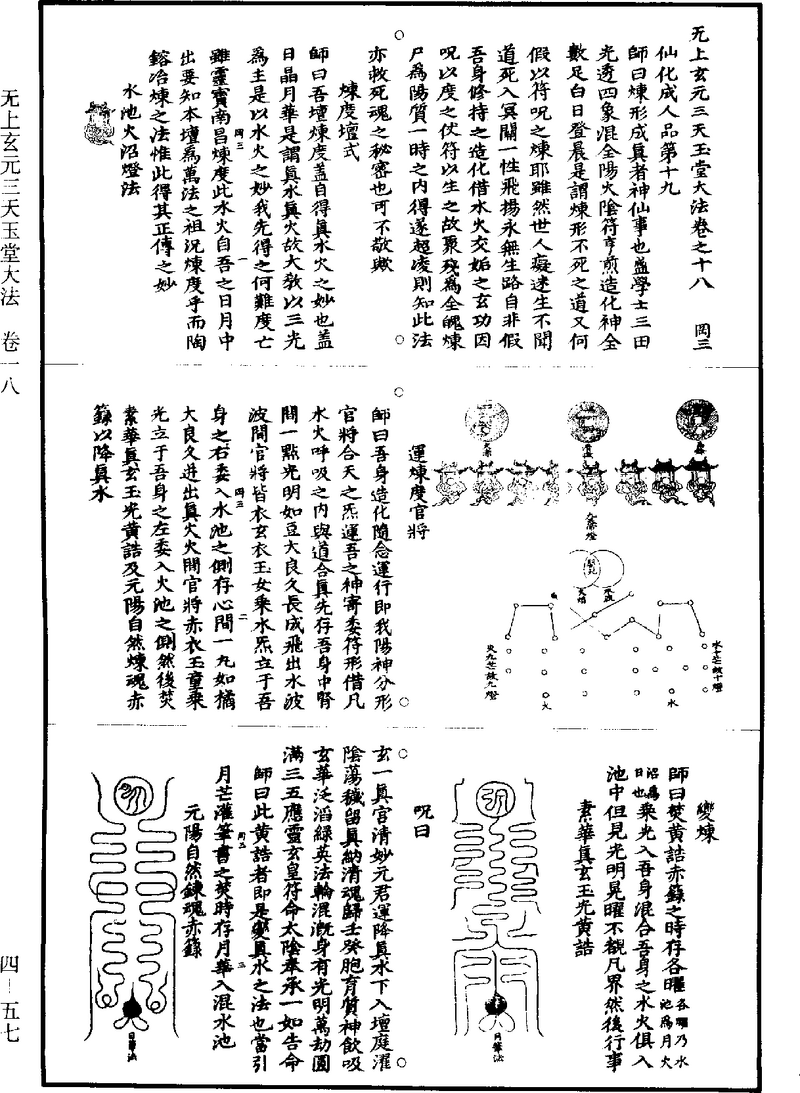 无上玄元三天玉堂大法卷之十八　罔三
仙化成人品第十九
師曰煉形成眞者神仙事也蓋學士三田
光透四象混全陽火陰符亨煎造化神全
數足白日登晨是謂煉形不死之道又何
假以符呪之煉耶雖然世人癡迷生不聞
道死入冥關一性飛揚永無生路自非假
吾身修持之造化借水火交姤之玄功因
呪以度之仗符以生之故聚殘爲全魄煉
尸爲陽質一時之內得遂超凌則知此法
亦救死魂之秘密也可不敬歟
煉度壇式
師曰吾壇煉度蓋自得眞水火之妙也蓋
日晶月華是謂眞水眞火故大敎以三光
爲主是以水火之妙我先得之何難度亡
雖靈寶南昌煉度此水火自吾之日月中
出要知本壇爲萬法之祖況煉度乎而陶
鎔冶煉之法惟此得其正傳之妙
水池火沼燈法
罔三
一
九霄燈
水池
火沼
水十芒故十燈
火九芒故九燈
水
火
運煉度官將
師曰吾身造化隨念運行即我陽神分形
官將合天之炁運吾之神寄委符形借凡
水火呼吸之內與道合眞先存吾身中腎
間一點光明如豆大良久長成飛出水波
波間官將皆衣玄衣玉女乘水炁立于吾
身之右委入水池之側存心間一九如橘
大良久迸出眞火火間官將赤衣玉童乘
光立于吾身之左委入火池之側然後焚
素華眞玄玉光黃誥及元陽自然煉魂赤
籙以降眞水
罔三
二
變煉
師曰焚黃誥赤籙之時存各曜各曜乃水池爲月火沼爲日也
乘光入吾身混合吾身之水火俱入
池中但見光明晃曜不覩凡界然後行事
素華眞玄玉光黃誥
月華法
呪曰
玄一眞官清妙元君運降眞水下入壇庭濯
陰蕩穢留眞納清魂歸壬癸胞育質神飲吸
玄華泛滔綠英法輪混漑身有光明萬劫圓
滿三五應靈玄皇符命太陰奉承一如告命
師曰此黃誥者即是變眞水之法也當引
月芒灌筆書之焚時存月華入混水池
元陽自然鍊魂赤籙
罔三
三
日華法
无上玄元三天玉堂大法　卷一八
四—五七